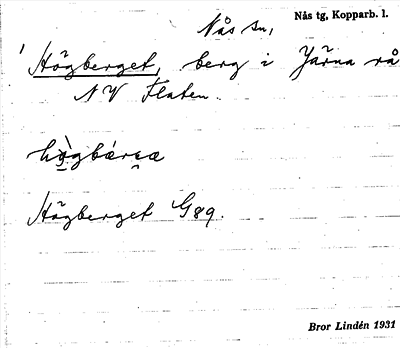 Nås sn,
Nås tg, Kopparb. l.
Högberget, berg i Järna rå
NV Flaten.
Högberget G89.
Bror Lindén 1931